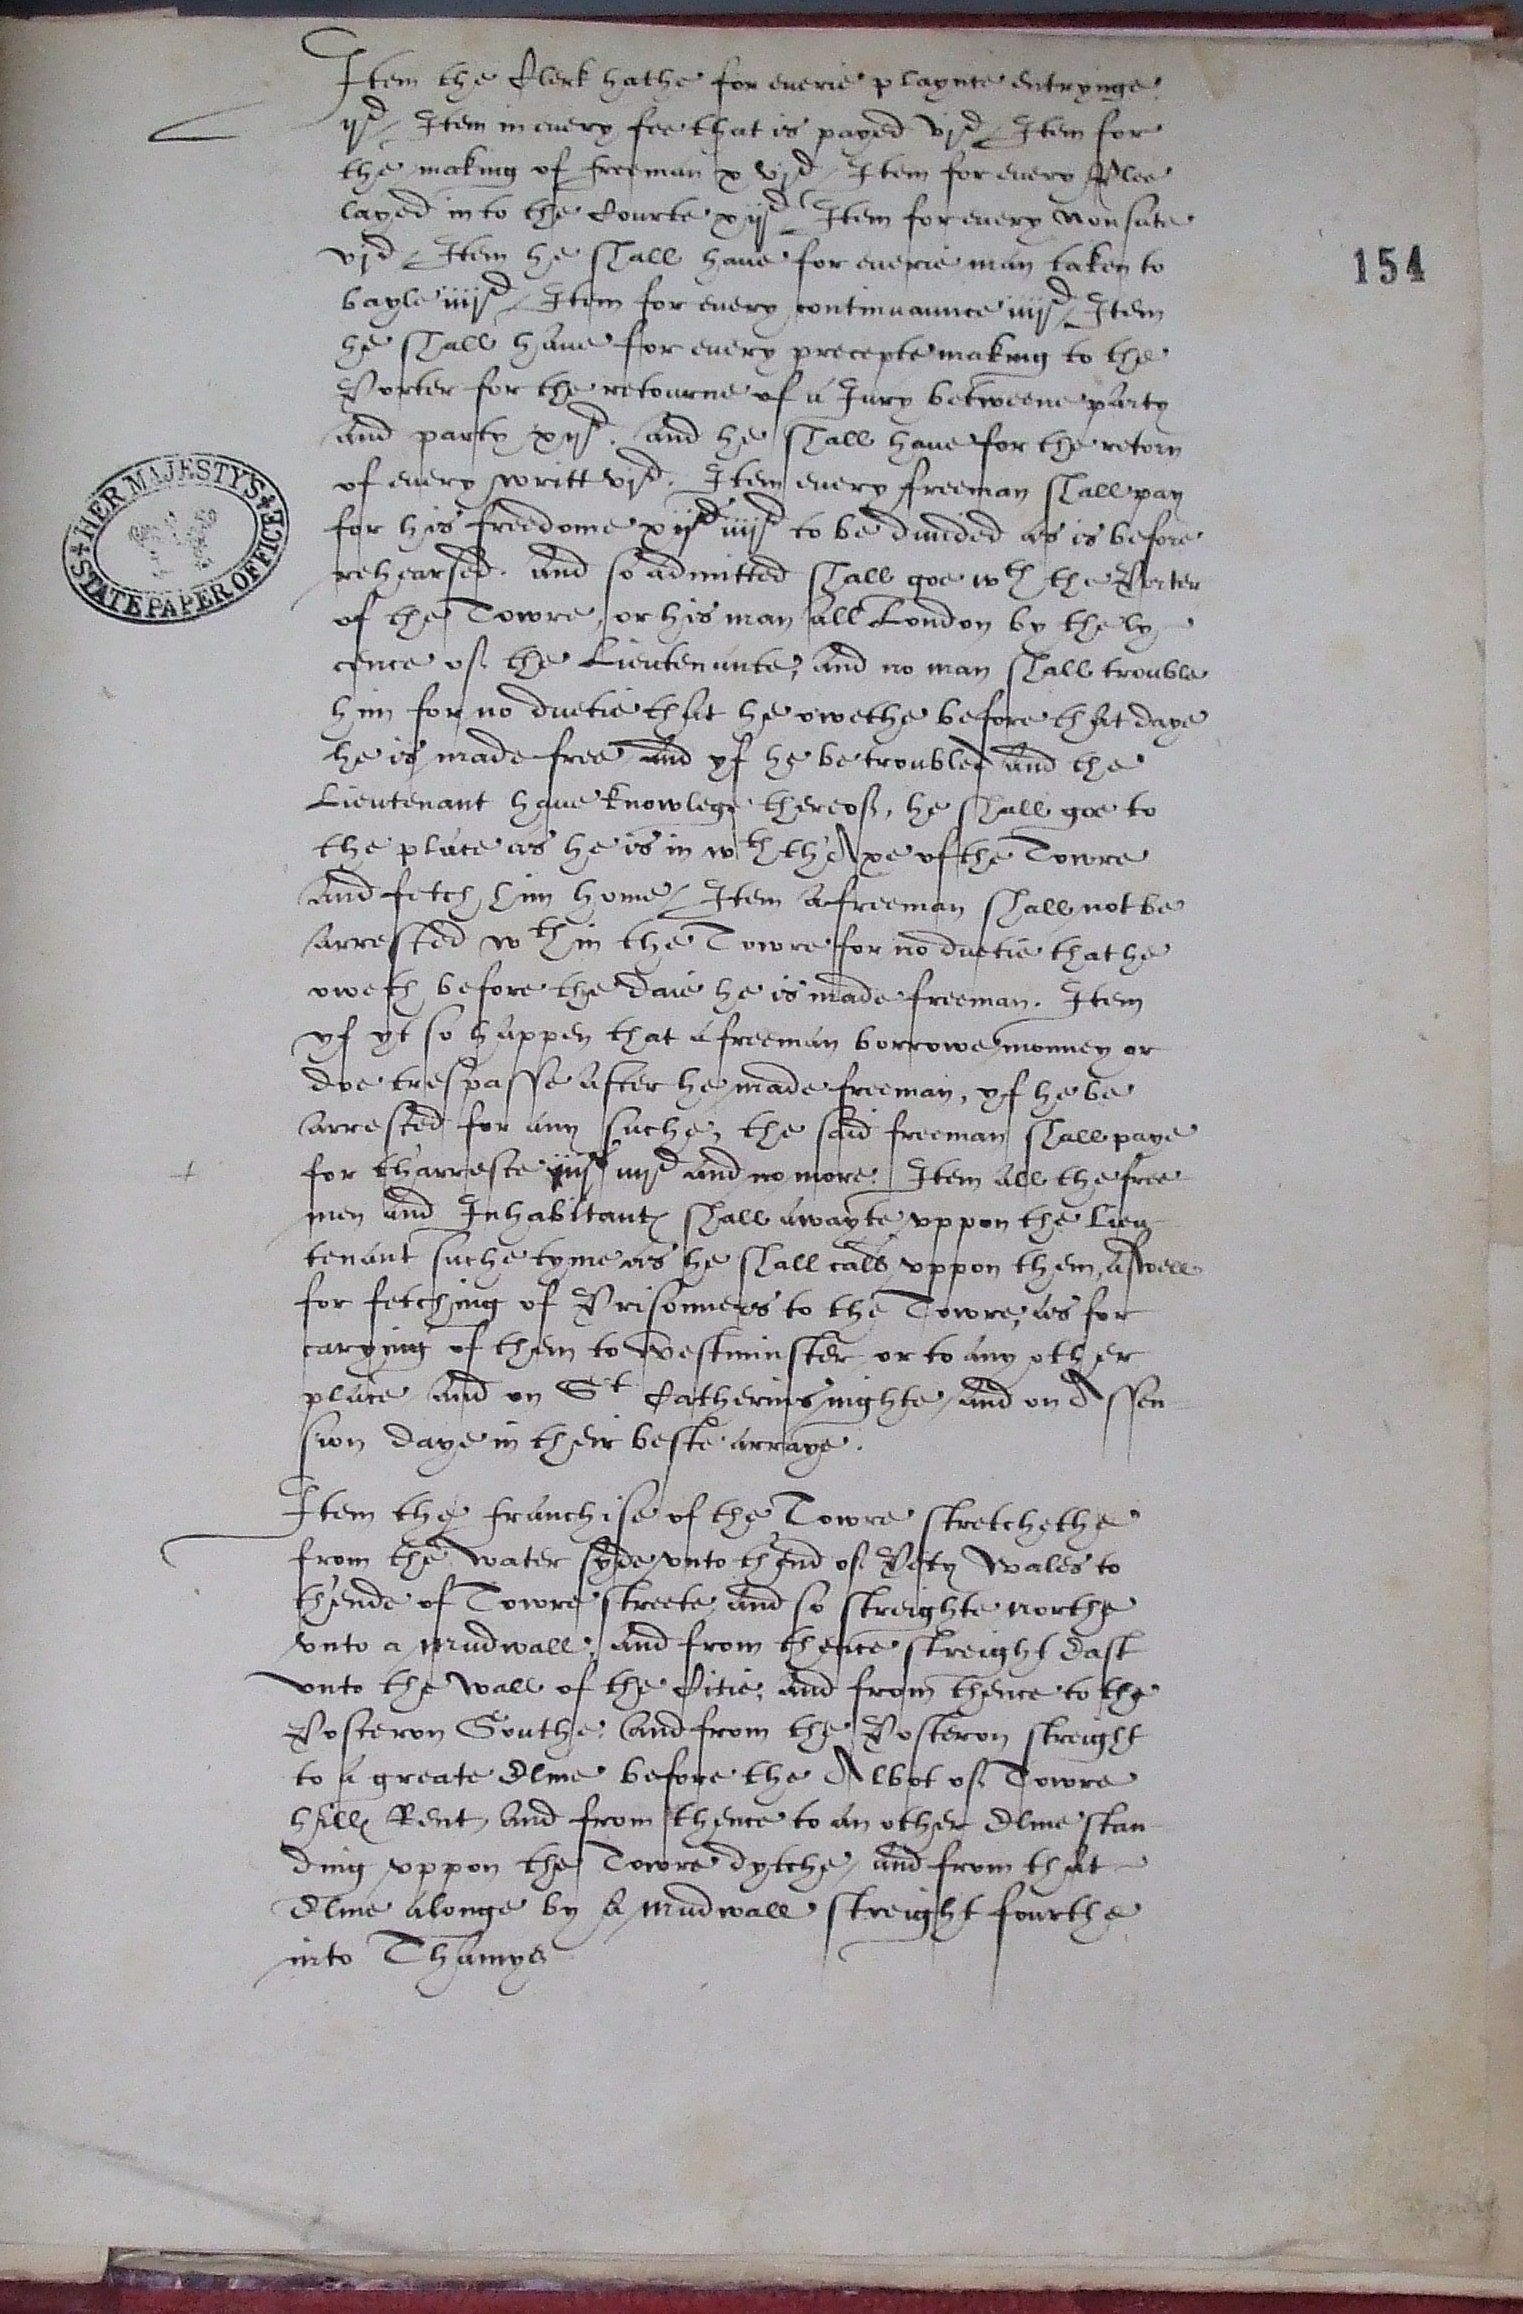 Item the Clerk hathe for euerie playnte entrynge
ijd / Item in euery fee that is payed vjd / Item for
the making of freeman xvjd / Item for euery Plee
layed in to the Courte xijd / Item for euery nonsute
vjd / Item he shall haue for euerie man taken to
bayle iiijd / Item for euery continuaunce iiijd / Item
he shall haue for euery precepte making to the
Porter for the retourne of a Jury betweene party
and party xijd. and he shall haue for the retorn
of euery writt vjd. Item euery freeman shall pay
for his freedome xijs iiijd to be diuided as is before
rehearsed. And so admitted shall goe wth the Porter
of the Towre, or his man all London by the ly-
cence of the Lieutenante, and no man shall trouble
him for no duetie that he owethe before that daye
he is made free And yf he be troubled and the
Lieutenant haue knowlege thereof, he shall goe to
the place as he is in wth th'Axe of the Towre
and fetch him home / Item a freeman shall not be
arrested wthin the Towre for no duetie that he
oweth before the daie he is made freeman. Item
yf yt so happen that a freeman borrowe monney or
doe trespasse after he made freeman, yf he be
arrested for any suche, the said freeman shall paye
for th'arreste iiijd and no more. Item all the free
men and Inhabitantes shall awayte vppon the Lieu
tenant suche tyme as he shall call vppon them, aswell
for fetching of Prisonners to the Towre, as for
carying of them to Westminster or to any other
place and on St Catherins nighte, and on Assen-
sion daye in their beste arraye.
Item the franchise of the Towre stretchethe
from the water syde vnto th'end of Pety Wales to
th'ende of Towre streete, and so streighte northe
vnto a mudwall, and from thence streight East
vnto the wall of the Citie, and from thence to the
Posteron Southe. And from the Posteron streight
to a greate Elme before the Abbot of Towre
hill Rent, and from thence to an other Elme stan-
ding vppon the Towre dytche, and from that
Elme alonge by a mudwall streight fourthe
into Thamys
154
HER MAJESTY'S
STATE PAPER OFFICE